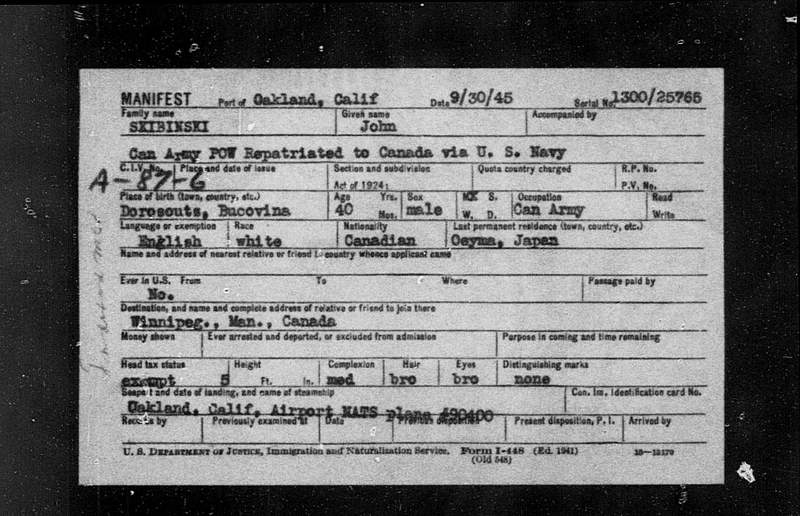 MANIFEST Port of Oakland, Calif Date 9/30/45 Serial No. 1300/25765
Family name Given name Accompanied by
SKIBINSKI John
Can Army POW Repatriated to Canada via U. S. Navy
C.I.V. No. Place and date of issue Section and subdivision Quota country charged R.P. No.
A-87-6 Act of 1924: P.V. No.
Place of birth (town, country, etc.) Age Yrs. Sex S. Occupation Read
Dorosouts, Bucovina 40 Mos. male W. D. Can Army Write
Language or exemption Race Nationality Last permanent residence (town, country, etc.)
English white Canadian Oeyma, Japan
Name and address of nearest relative or friend in country whence applicant came
Ever in U.S. From To Where Passage paid by
No.
Destination, and name and complete address of relative or friend to join there
Winnipeg., Man., Canada
Money shown Ever arrested and deported, or excluded from admission Purpose in coming and time remaining
Head tax status Height Complexion Hair Eyes Distinguishing marks
exempt 5 Ft. In. med bro bro none
Seaport and date of landing, and name of steamship Con. Im. Identification card No.
Oakland, Calif, Airport NATS plane #90400
Records by Previously examined at Date Previous disposition Present disposition, P. I. Arrived by
U. S. DEPARTMENT OF JUSTICE, Immigration and Naturalization Service. Form I-448 (Ed. 1941)
(Old 548)